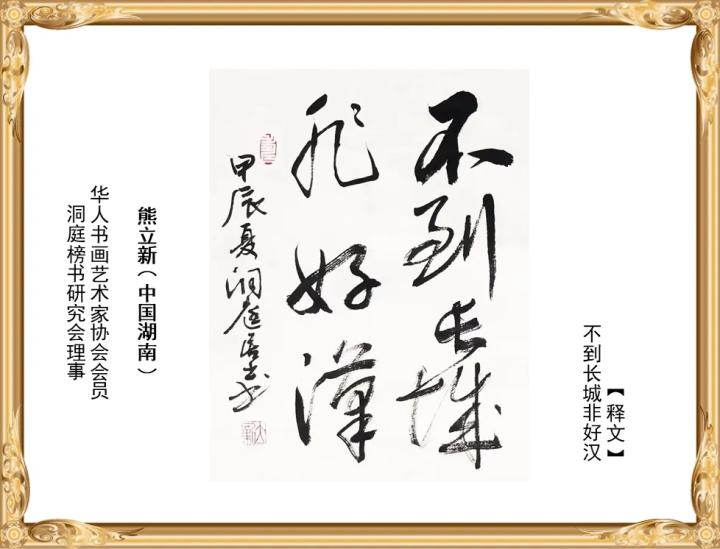 【释文】
不到长城非好汉
不到长城
非好汉
甲辰夏洞庭居士书
熊立新（中国湖南）
华人书画艺术家协会会员
洞庭榜书研究会理事